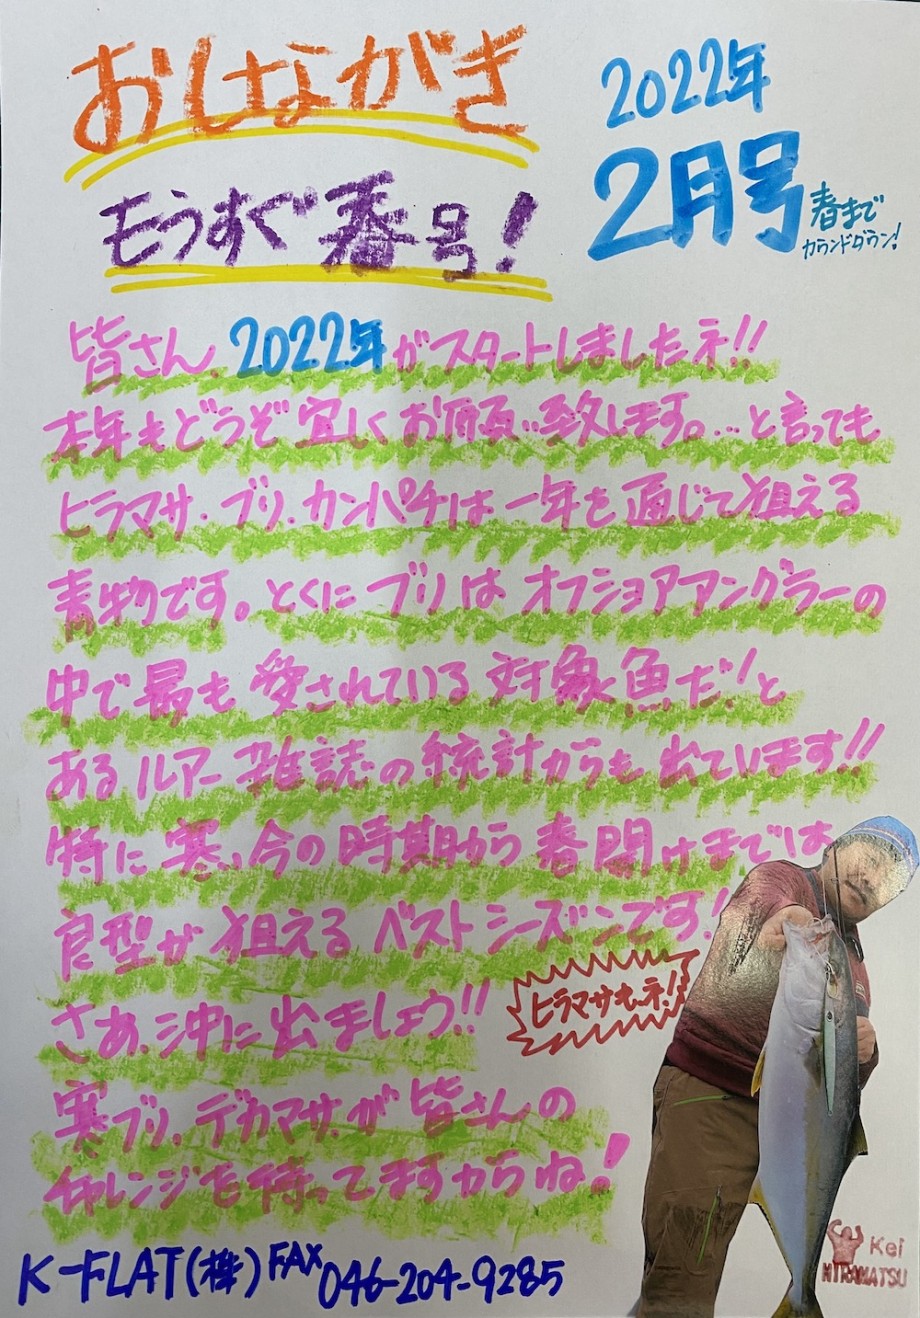 おしながき
2022年
2月号
春まで
カウンドダウン!
もうすぐ春号!
皆さん、2022年がスタートしましたネ!!
本年もどうぞ宜しくお願い致します。…と言っても
ヒラマサ・ブリ・カンパチは一年を通じて狙える
青物です。とくにブリはオフショアアングラーの
中で最も愛されている対象魚だ!と
あるルアー雑誌の統計からも出ています!!
特に寒い今の時期から春開けまでは
良型が狙えるベストシーズンです!
ヒラマサも、ネ!
さあ、沖に出ましょう!!
寒ブリ、デカマサ、が皆さんの
チャレンジを待ってますからね!
K-FLAT(株) FAX 046-204-9285
Kei
HIRAMATSU